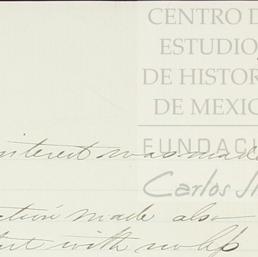 CENTRO D
ESTUDIO
DE HISTOR
DE MEXIC
FUNDACI
Carlos Sl
interest was made
ction made also
but with no